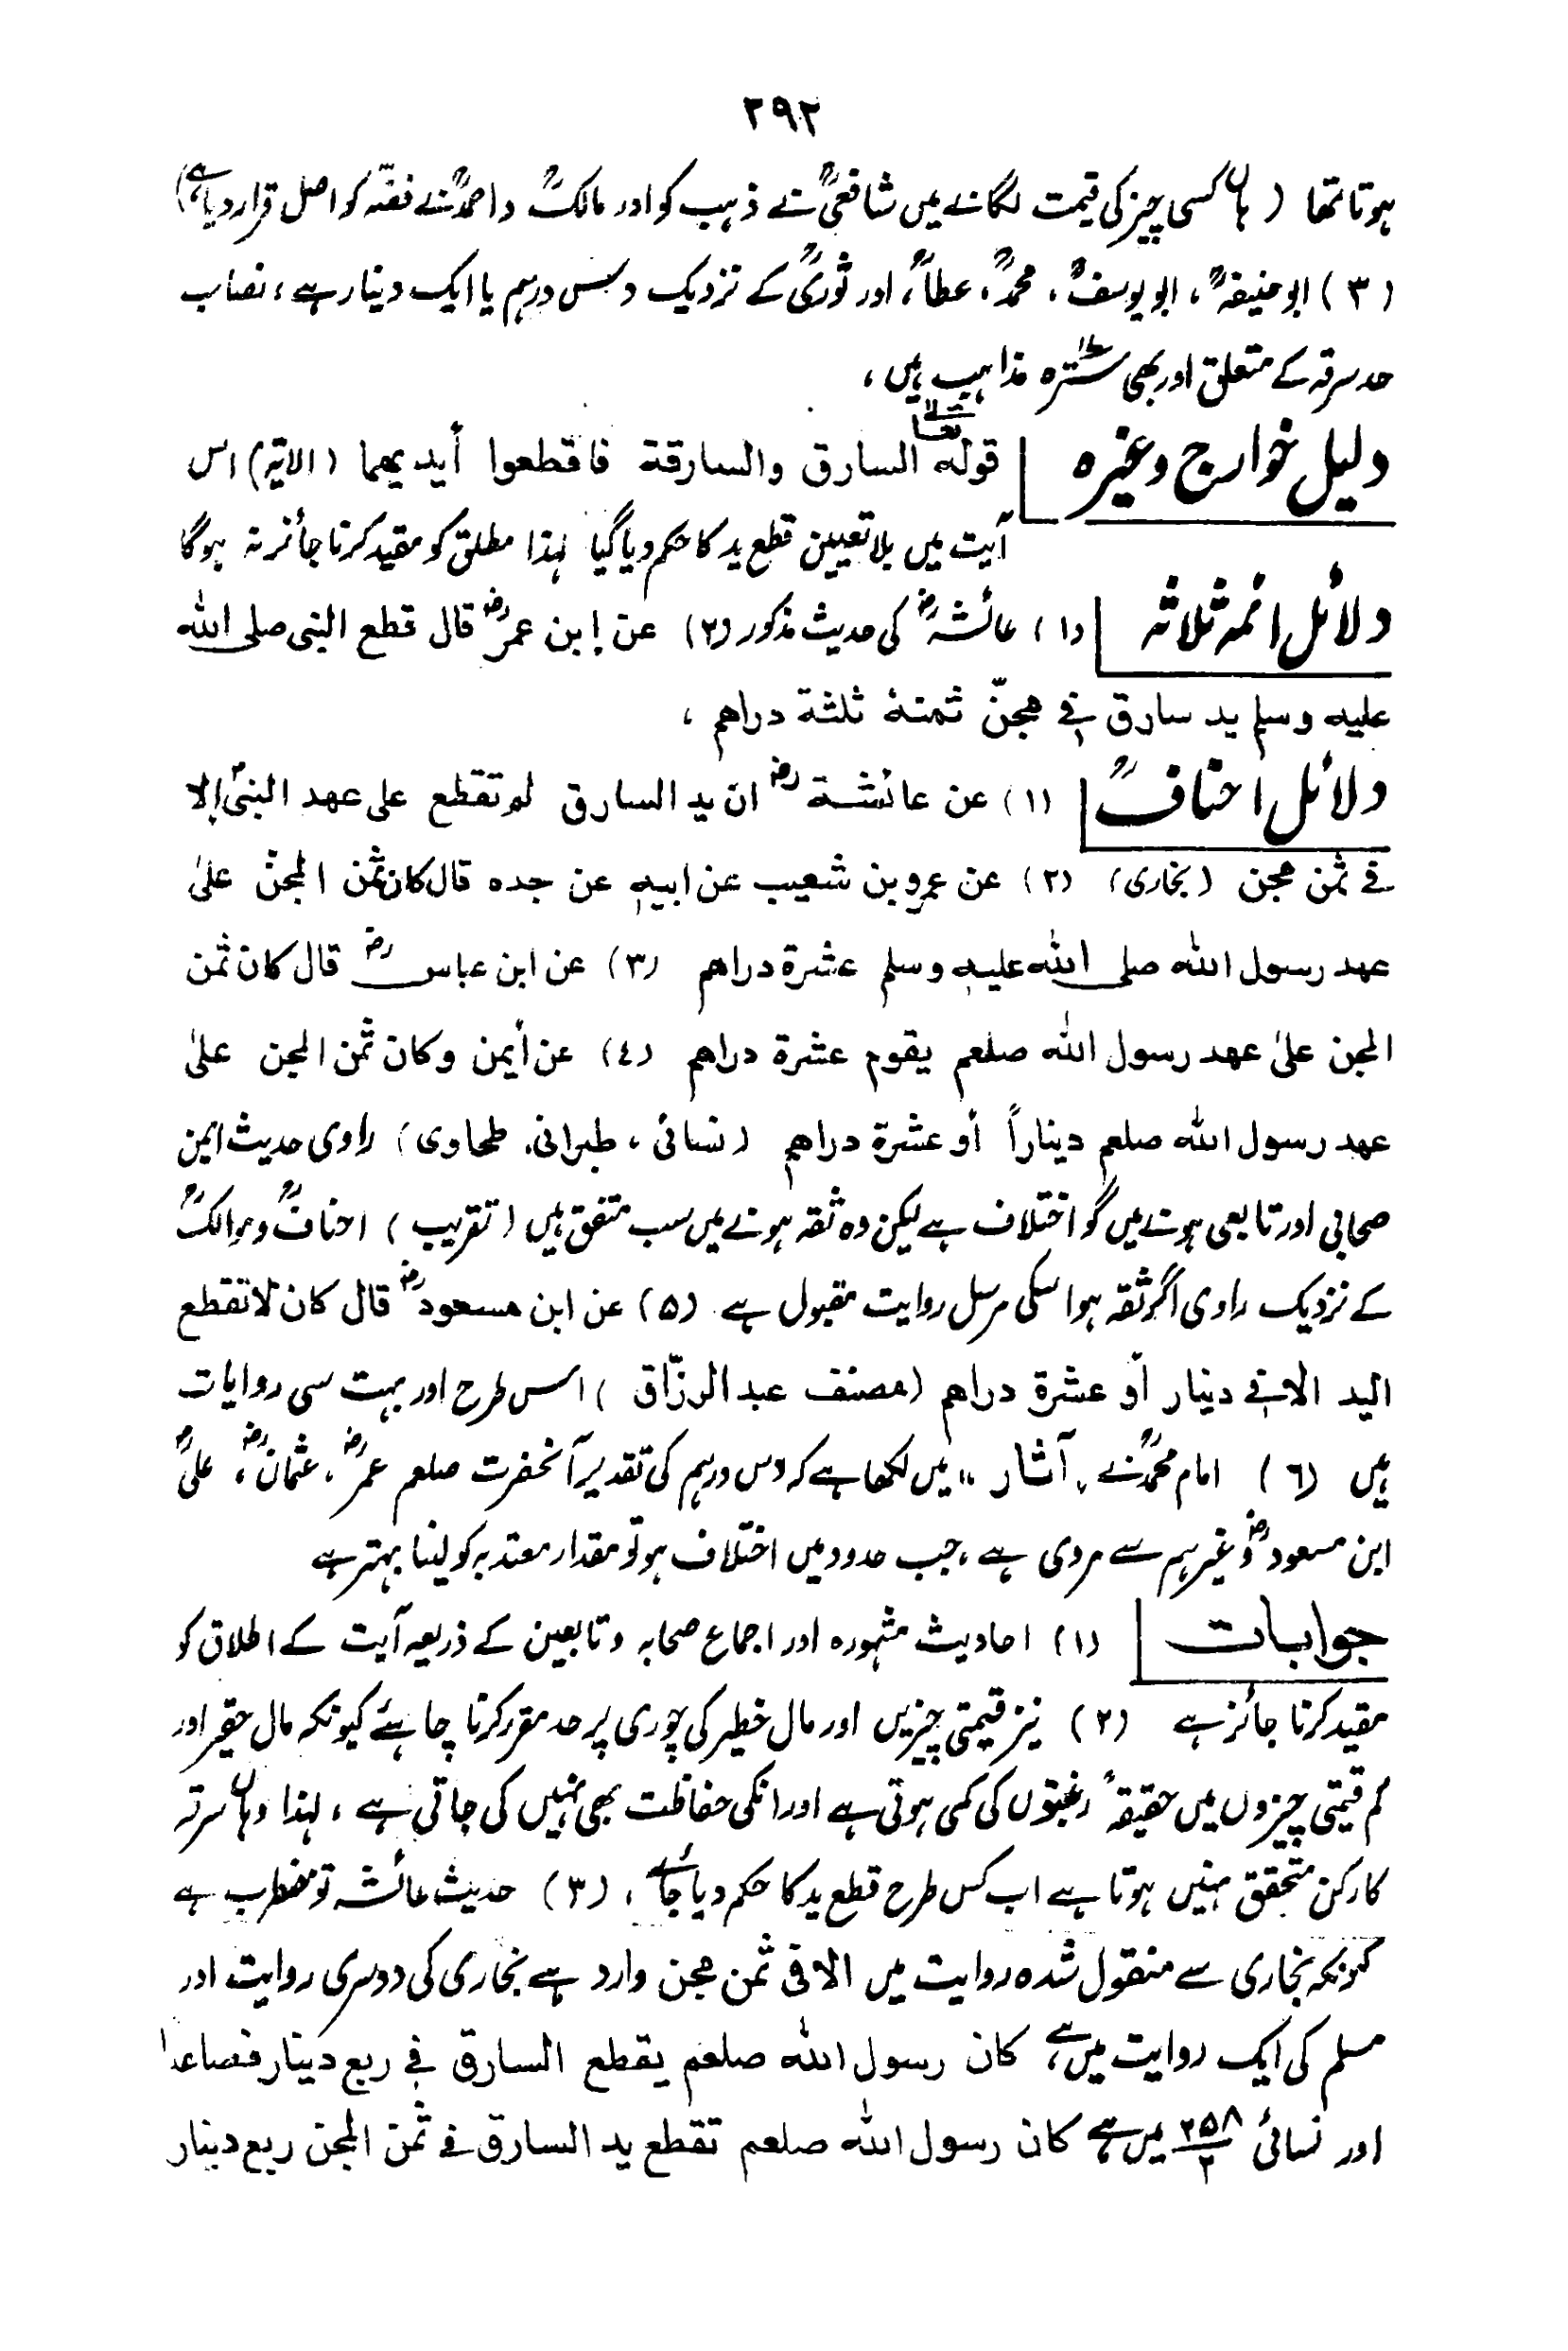 ۲۹۲
ہوتا تھا ( ہاں کسی چیز کی قیمت لگانے میں شافعیؒ نے ذہب کو اور مالکؒ واحمدؒ نے فضّہ کو اصل قرار دیا ہے)
(۳) ابو حنیفہؒ، ابو یوسفؒ، محمدؒ، عطاءؒ، اور ثوریؒ کے نزدیک دس درہم یا ایک دینار ہے، نصاب
حد سرقہ کے متعلق اور بھی سترہ ۱۷ مذاہب ہیں،
دلیل خوارج وغیرہ | قولہ تعالیٰ السارق والسارقة فاقطعوا أيديهما (الاية) اس
آیت میں بلا تعیین قطع ید کا حکم دیا گیا لہٰذا مطلق کو مقید کرنا جائز نہ ہوگا
دلائل ائمہ ثلاثہ | (۱) عائشہؓ کی حدیث مذکور (۲) عن ابن عمرؓ قال قطع النبی صلی الله
علیه وسلم ید سارق فی مجنّ ثمنهٔ ثلثة دراهم ،
دلائل احنافؒ | (۱) عن عائشةؓ ان ید السارق لم تقطع علی عهد النبیؐ إلا
فی ثمن مجن (بخاری) (۲) عن عمرو بن شعیب عن ابیه عن جده قال کان ثمن المجن علیٰ
عهد رسول الله صلی الله علیه وسلم عشرة دراهم (۳) عن ابن عباسؓ قال کان ثمن
المجن علیٰ عهد رسول الله صلعم یقوم عشرة دراهم (٤) عن أیمن وکان ثمن المجن علیٰ
عهد رسول الله صلعم دیناراً أو عشرة دراهم (نسائی، طبرانی، طحاوی) راوی حدیث ایمن
صحابی اور تابعی ہونے میں گو اختلاف ہے لیکن وہ ثقہ ہونے میں سب متفق ہیں (تقریب) احنافؒ و موالکؒ
کے نزدیک راوی اگر ثقہ ہو اسکی مرسل روایت مقبول ہے (۵) عن ابن مسعودؓ قال کان لا تقطع
الید الا فی دینار أو عشرة دراهم (مصنف عبد الرزّاق) اس طرح اور بہت سی روایات
ہیں (٦) امام محمدؒ نے "آثار" میں لکھا ہے کہ دس درہم کی تقدیر آنحضرت صلعم عمرؓ، عثمانؓ، علیؓ
ابن مسعودؓ وغیرہم سے مروی ہے، جب حدود میں اختلاف ہو تو مقدار معتد بہ کو لینا بہتر ہے
جوابات | (۱) احادیث مشہورہ اور اجماع صحابہ وتابعین کے ذریعہ آیت کے اطلاق کو
مقید کرنا جائز ہے (۲) نیز قیمتی چیزیں اور مال خطیر کی چوری پر حد مقرر کرنا چاہئے کیونکہ مال حقیر اور
کم قیمتی چیزوں میں حقیقۃً رغبتوں کی کمی ہوتی ہے اور انکی حفاظت بھی نہیں کی جاتی ہے، لہٰذا وہاں سرقہ
کا رکن متحقق نہیں ہوتا ہے اب کس طرح قطع ید کا حکم دیا جائے، (۳) حدیث عائشہ تو مضطرب ہے
کیونکہ بخاری سے منقول شدہ روایت میں الا فی ثمن مجن وارد ہے بخاری کی دوسری روایت اور
مسلم کی ایک روایت میں ہے کان رسول الله صلعم یقطع السارق فی ربع دینار فصاعدا
اور نسائی ۲۵۸/۲ میں ہے کان رسول الله صلعم تقطع ید السارق فی ثمن المجن ربع دینار